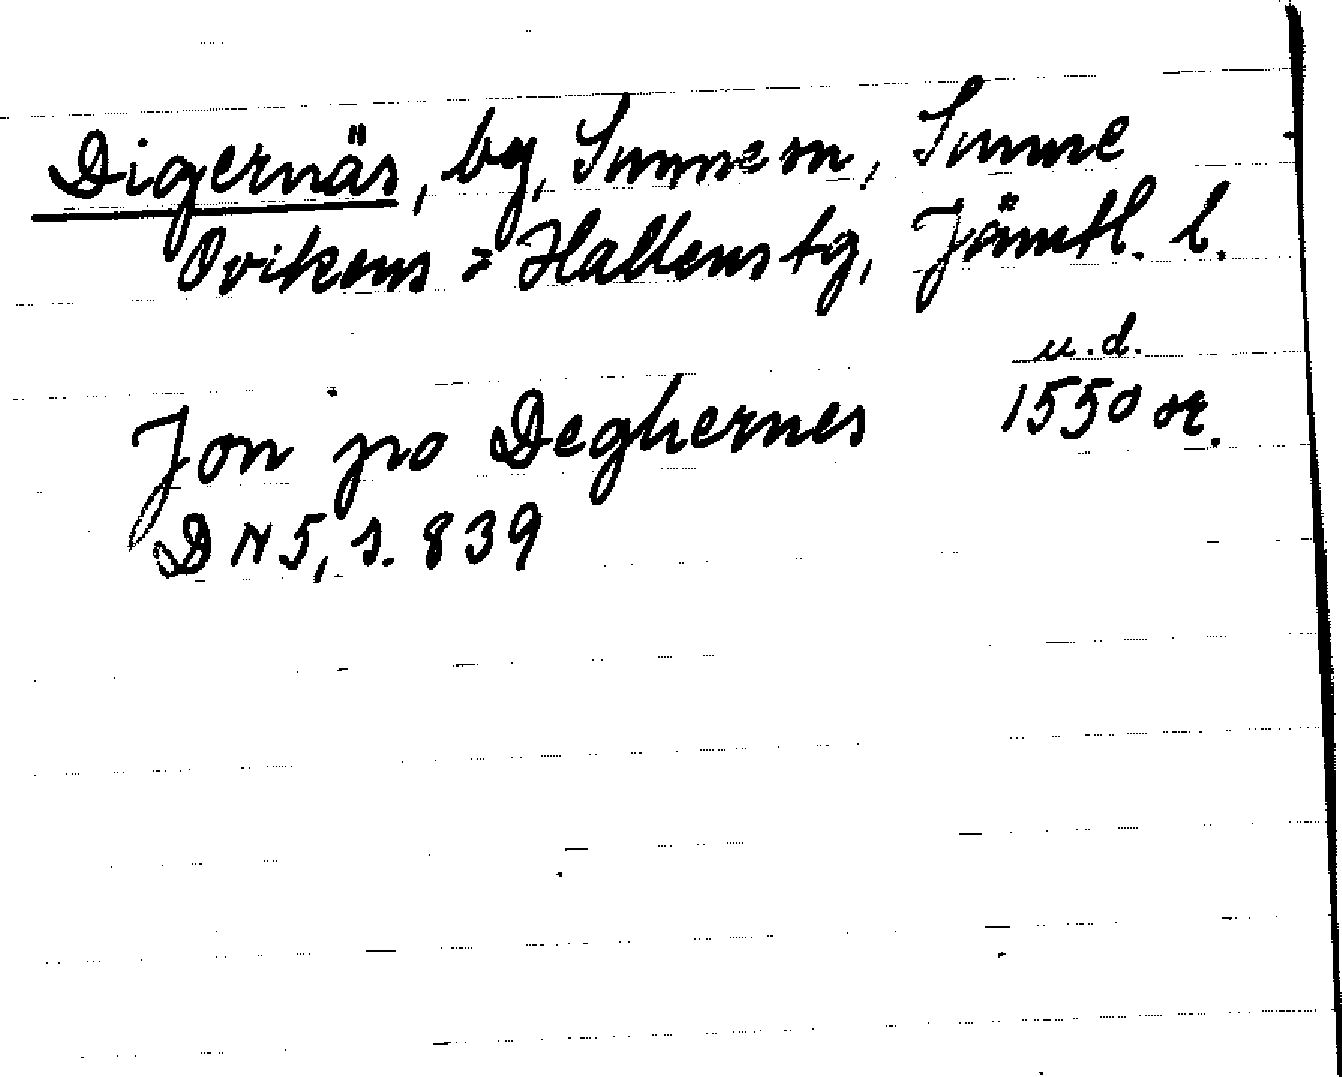 Digernäs, by, Sunne sn, Sunne
Ovikens = Hallens tg, Jämtl. l.
u.d.
Jon po Deghernes 1550 or.
DN 5, s. 839